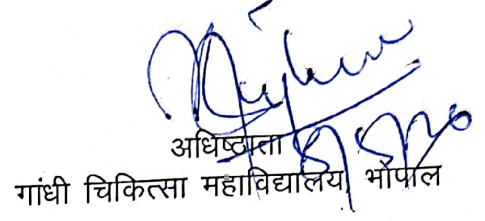 अधिष्ठाता
गांधी चिकित्सा महाविद्यालय, भोपाल